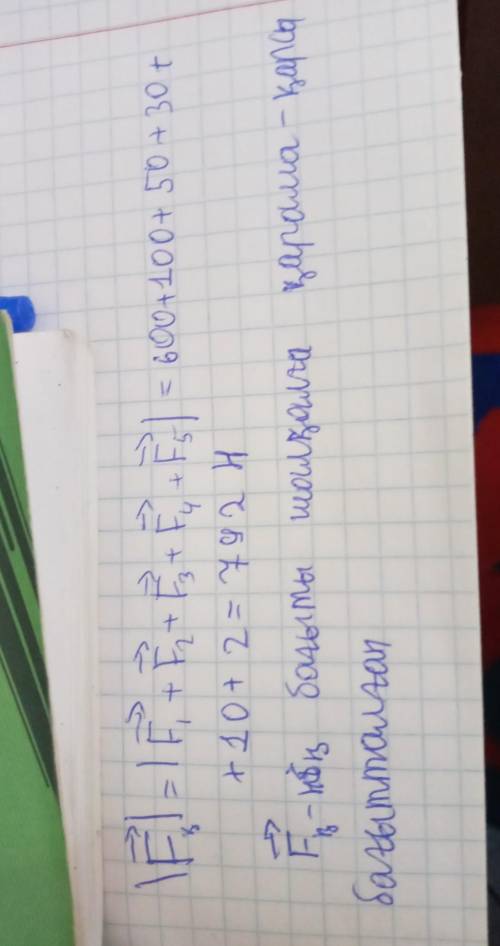 |F⃗қ| = |F⃗₁ + F⃗₂ + F⃗₃ + F⃗₄ + F⃗₅| = 600+100+50+30+
+10+2=792 Н
F⃗қ-нің бағыты шалқалға қарама-қарсы
бағытталған